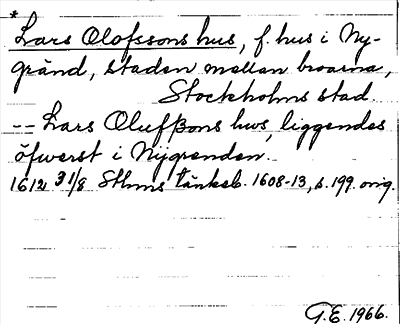 *
Lars Olofssons hus, f. hus i Ny-
gränd, staden mellan broarna,
Stockholms stad.
-- Lars Olufßons hus, liggendes
öfwerst i Nygrenden.
1612 31/8 Sthms tänkeb. 1608-13, s. 199. orig.
G.E. 1966.